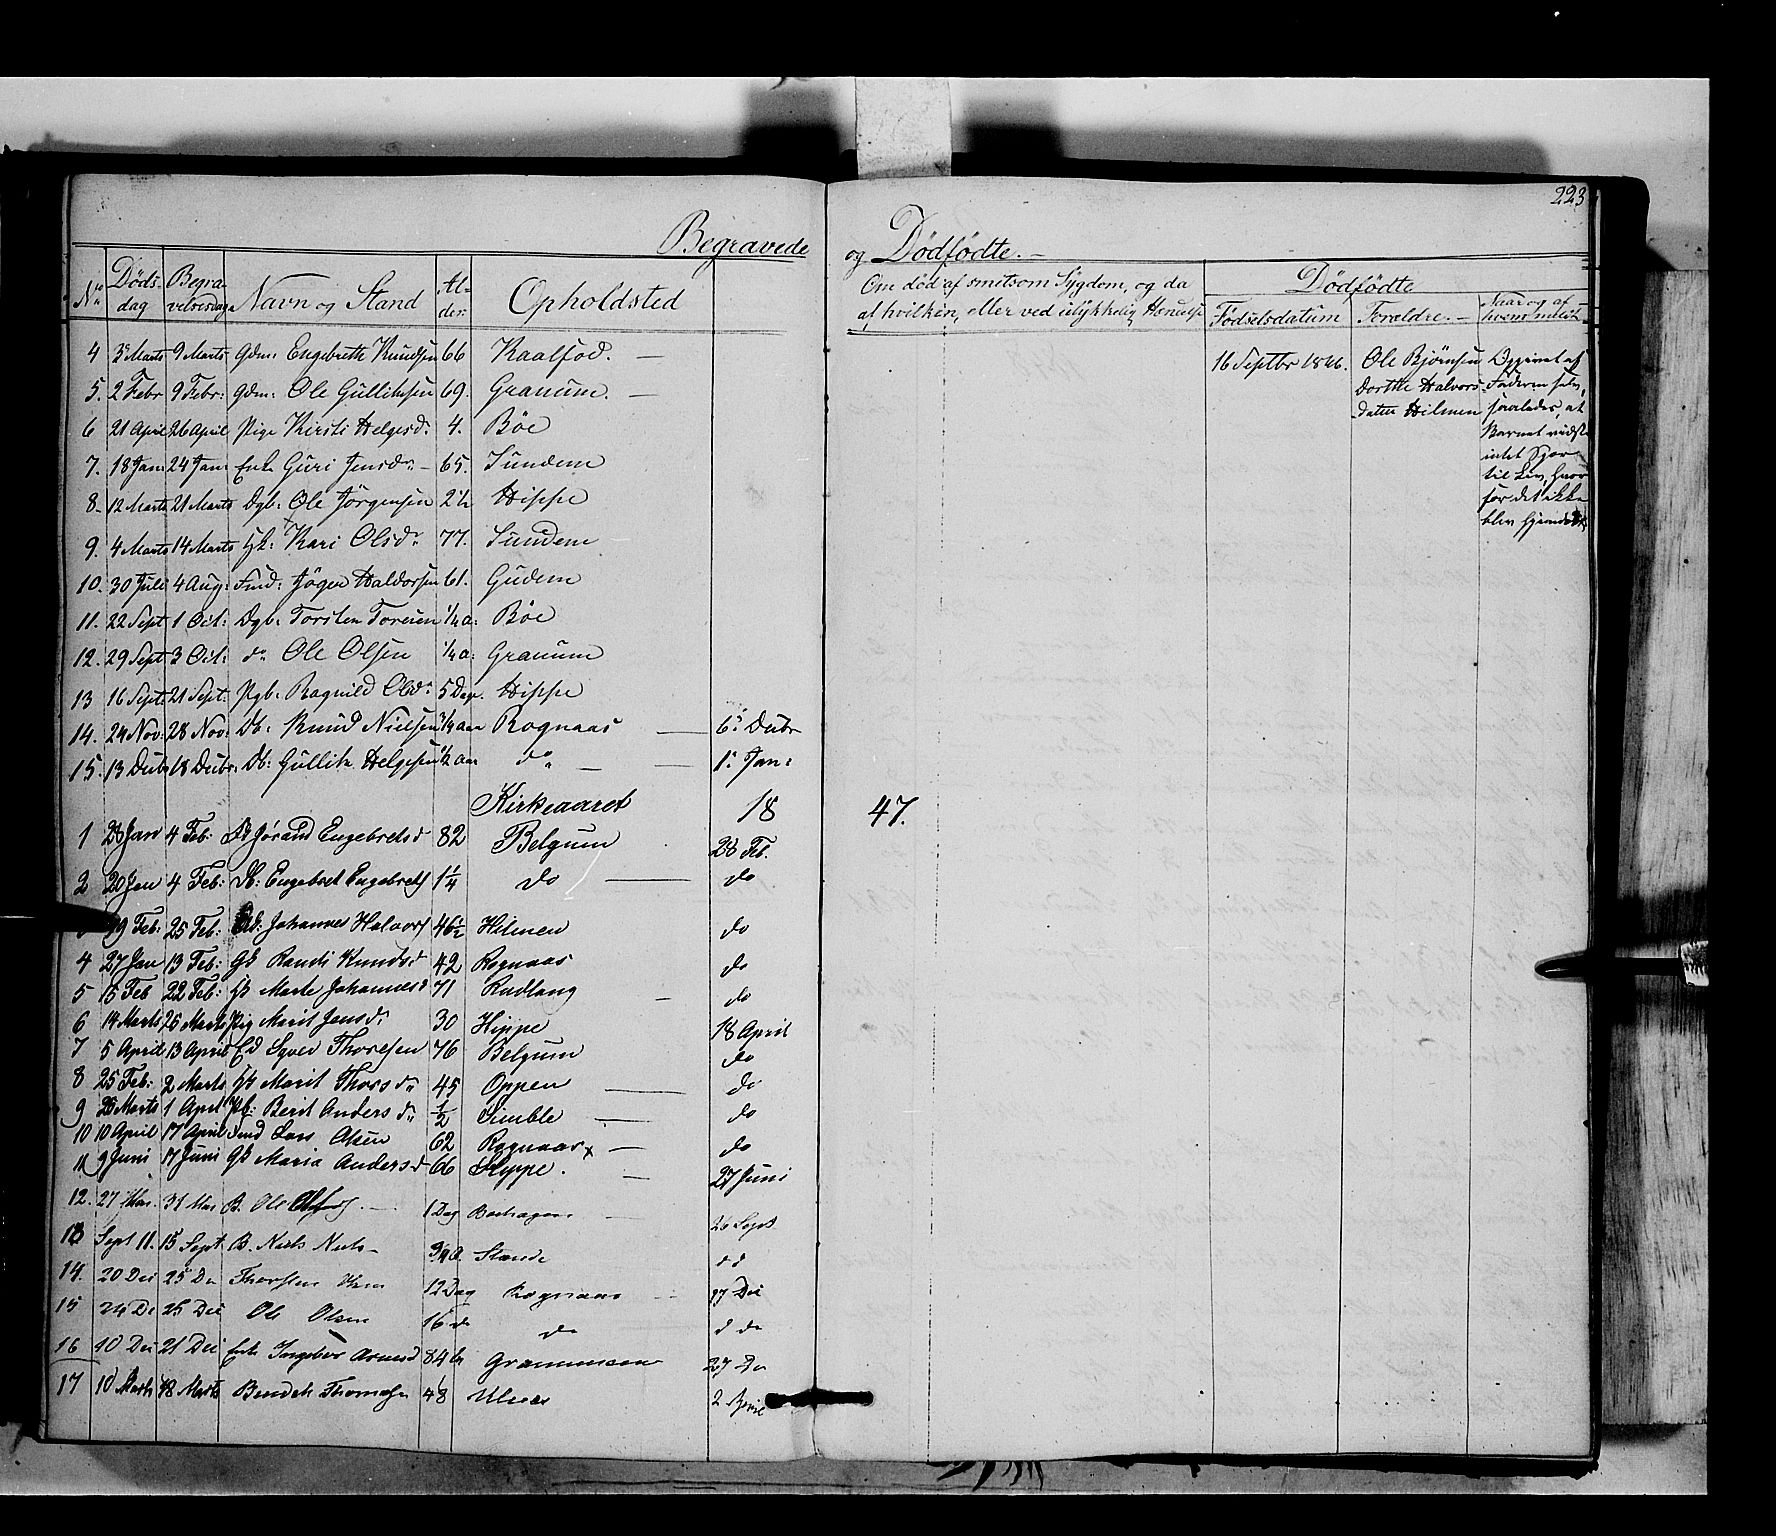 223
Begravede og Dødfødte.
No Døds- dag Begra- velsesdag Navn og Stand Al- der Opholdsted
Om død af smitsom Sygdom, og da
af hvilken, eller ved ulykkelig Hændelse
Dødfødte
Fødselsdatum Forældre. Naar og af hvem meldt
4 3 Marts 9 Marts Gdm: Engebreth Knudsen 66 Kaalfod.
5. 2 Febr 9 Febr: Gdm: Ole Gulliksen 69. Granum.
6 21 April 26 April Pige Kirsti Helgesd. 4. Bøe
7. 18 Jan: 24 Jan: Enke Guri Jensdr. 65. Sundem
8. 12 Marts 21 Marts Dgb: Ole Jörgensen 2½ Hippe
9. 4 Marts 14 Marts Kari Olsdr 77. Sundem
10. 30 Juli 4 Aug: Haldorsen 61. Gudem
11. 22 Sept 1 Oct: Dgb: Torsten ¼ a: Bøe
12. 29 Sept 3 Oct: do Ole Olsen ¼ a: Granum
13 16 Sept: 21 Sept: Pgb: Ragnild Olsdr 5 Dage. Hippe
14. 24 Nov: 28 Nov: Db: Knud Nielsen ¾ aar Rognaas 6 Decbr
15. 13 Decbr 18 Decbr: Db: Gullik Helgesen ½ aar do 1 Jan:
16 Septbr 1846. Ole Bjørnsen
Dorthe Halvors-
datter Hilmen
Opgivet af
Faderen selv,
saaledes, at
Barnet viidste
intet Spor
til Liv, hvor-
for det ikke
blev hjemdøbt
Kirkeaaret 18 47.
1 28 Jan 4 Feb: Jørand Engebretsd 82 Belgum 28 Feb.
2 20 Jan 4 Feb: Db: Engebret Engebrets 1¼ do do
19 Feb: 25 Feb: Johannes Halvors 46½ Hilmen do
4 27 Jan 13 Feb: Gk Randi Knudsd 42 Rognaas do
5 15 Feb 22 Feb: Marte Johannesd 71 Rudlang do
6 14 Marts 26 Marts Pig Marit Jensdr 30 Hippe 18 April
7 5 April 13 April Thoresen 76 Belgum do
8 25 Feb: 2 Marts Marit Thorsdr 45 Oppen do
9 26 Marts 1 April Pb: Berit Andersdr ½ do
10 10 April 17 April Ind Lars Olsen 62 Rognaas do
11 9 Juni 17 Juni Gk Maria Andersd 66 Hippe. 27 Juni
12. 27 Mai 31 Mai B. Ole 1 Dag 26 Sept
13 Sept 11. 15 Sept B. Niels Niels ¾ a Stande
14. 20 Dec 25 De Thorsten 12 Dag Rognaas 27 Dec
15 24 De 25 Dec Ole Olsen 16 do do d do
16 10 Dec 21 Dec Enke Ingebor Arnesd 84 27 De
17 10 Marts 18 Marts Thomas 48 2 April